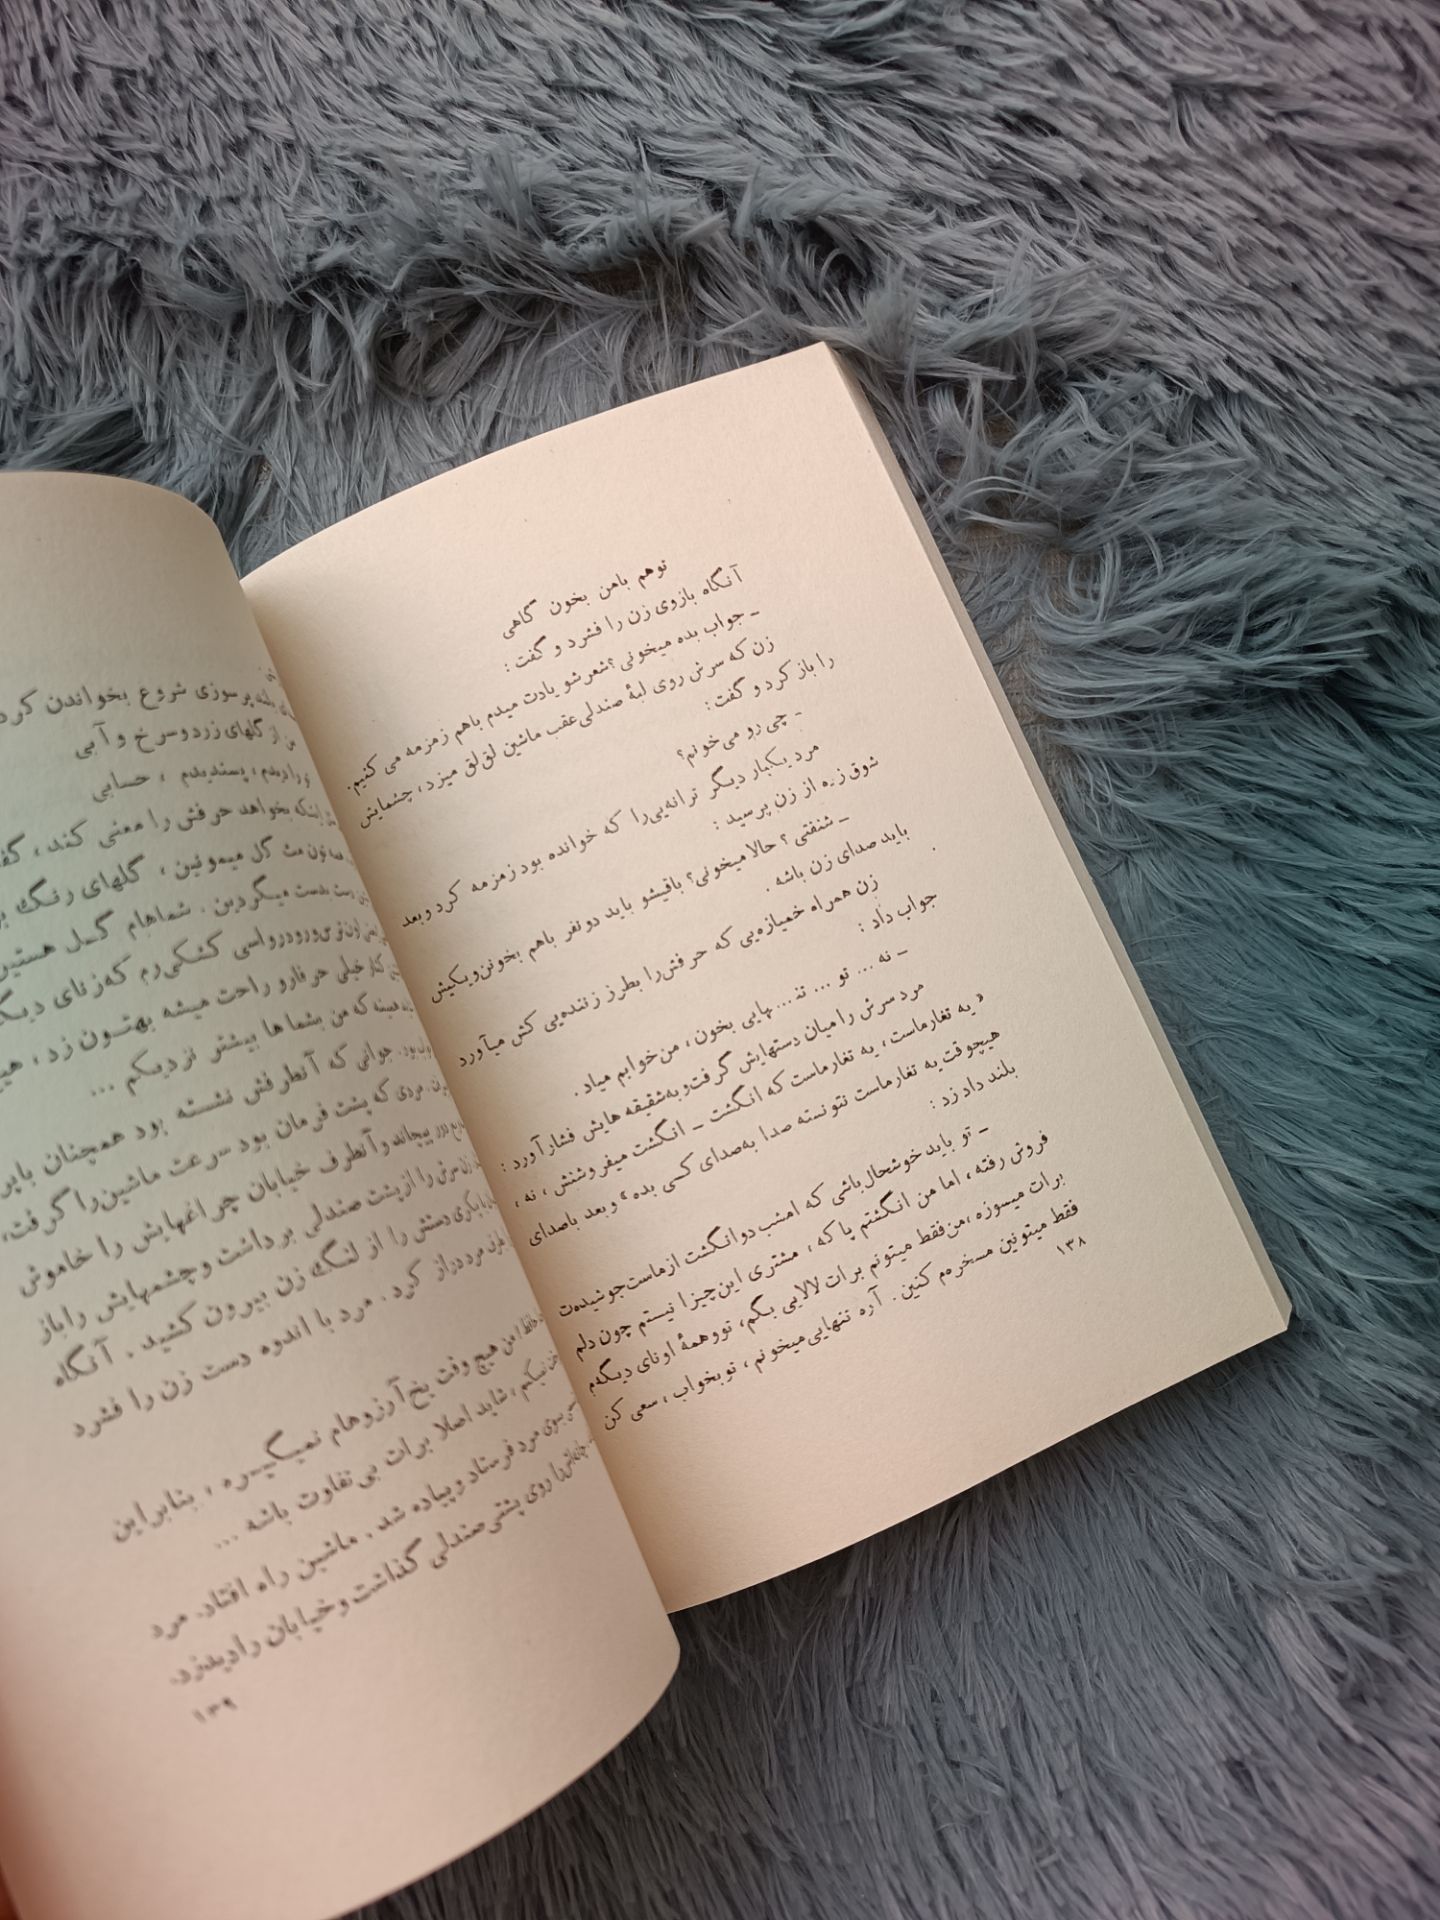 توهم بامن بخون گاهی
آنگاه بازوی زن را فشرد و گفت :
ـ جواب بده میخونی؟ شعرشو یادت میدم باهم زمزمه می کنیم.
زن که سرش روی لبهٔ صندلی عقب ماشین لق‌لق میزد ، چشمایش
را باز کرد و گفت :
ـ چی رو می‌خونم؟
مرد یکبار دیگر ترانه‌یی‌را که خوانده بود زمزمه کرد وبعد
شوق زده از زن پرسید :
ـ شنفتی ؟ حالا میخونی؟ باقیشو باید دونفر باهم بخونن‌ویکیش
باید صدای زن باشه .
زن همراه خمیازه‌یی که حرفش‌را بطرز زننده‌یی کش میآورد
جواب داد :
ـ نه ... تو ... تنـ...ـهایی بخون ، من‌خوابم میاد .
مرد سرش رامیان دستهایش گرفت‌وبه‌شقیقه هایش فشارآورد :
«یه تغارماست ، یه تغارماست که انگشت ـ انگشت میفروشنش ، نه ،
هیچوقت یه تغارماست نتونسته صدا به‌صدای کسی بده» وبعد باصدای
بلند داد زد :
ـ تو باید خوشحال‌باشی که امشب دوانگشت ازماست‌جوشیده‌ت
فروش رفته ، اما من انگشتم پا که ، مشتری این‌چیزا نیستم چون دلم
برات میسوزه ،من‌فقط میتونم برات لالایی بگم، تووهمهٔ اونای دیگه‌م
فقط میتونین مسخره‌م کنین . آره تنهایی‌میخونم ، توبخواب ، سعی کن
۱۳۸
پرسوزی شروع بخواندن کرد
من از گلهای زردوسرخ و آبی
رادیدم ، پسندیدم ، حسابی
اینکه بخواهد حرفش را معنی کند ،
گل میمونین ، گلهای رنگ
بدست میگردین . شماهام گـل هستین
کشکی‌رم که‌زنای
خیلی حرفارو راحت میشه بهتـون زد ،
که من بشماها بیشتر نزدیکم ...
جوانی که آنطرفش نشسته بود همچنان
مردی که پشت فرمان بود سرعت ماشین‌را گرفت،
پیچاند وآنطرف خیابان چراغهایش را خاموش
سرش را ازپشت صندلی برداشت وچشمهایش راباز
دستش را از لنگ زن بیرون کشید . آنگاه
دراز کرد . مرد با اندوه دست زن را فشرد
من هیچ وقت یخ‌آرزوهام نمیگیـره ، بنابراین
نمیکنم ، شاید اصلا برات بی تفاوت باشه ...
بسوی مرد فرستاد وپیاده شد . ماشین راه افتاد. مرد
روی پشتی‌صندلی گذاشت وخیابان رادیدزد.
۱۳۹